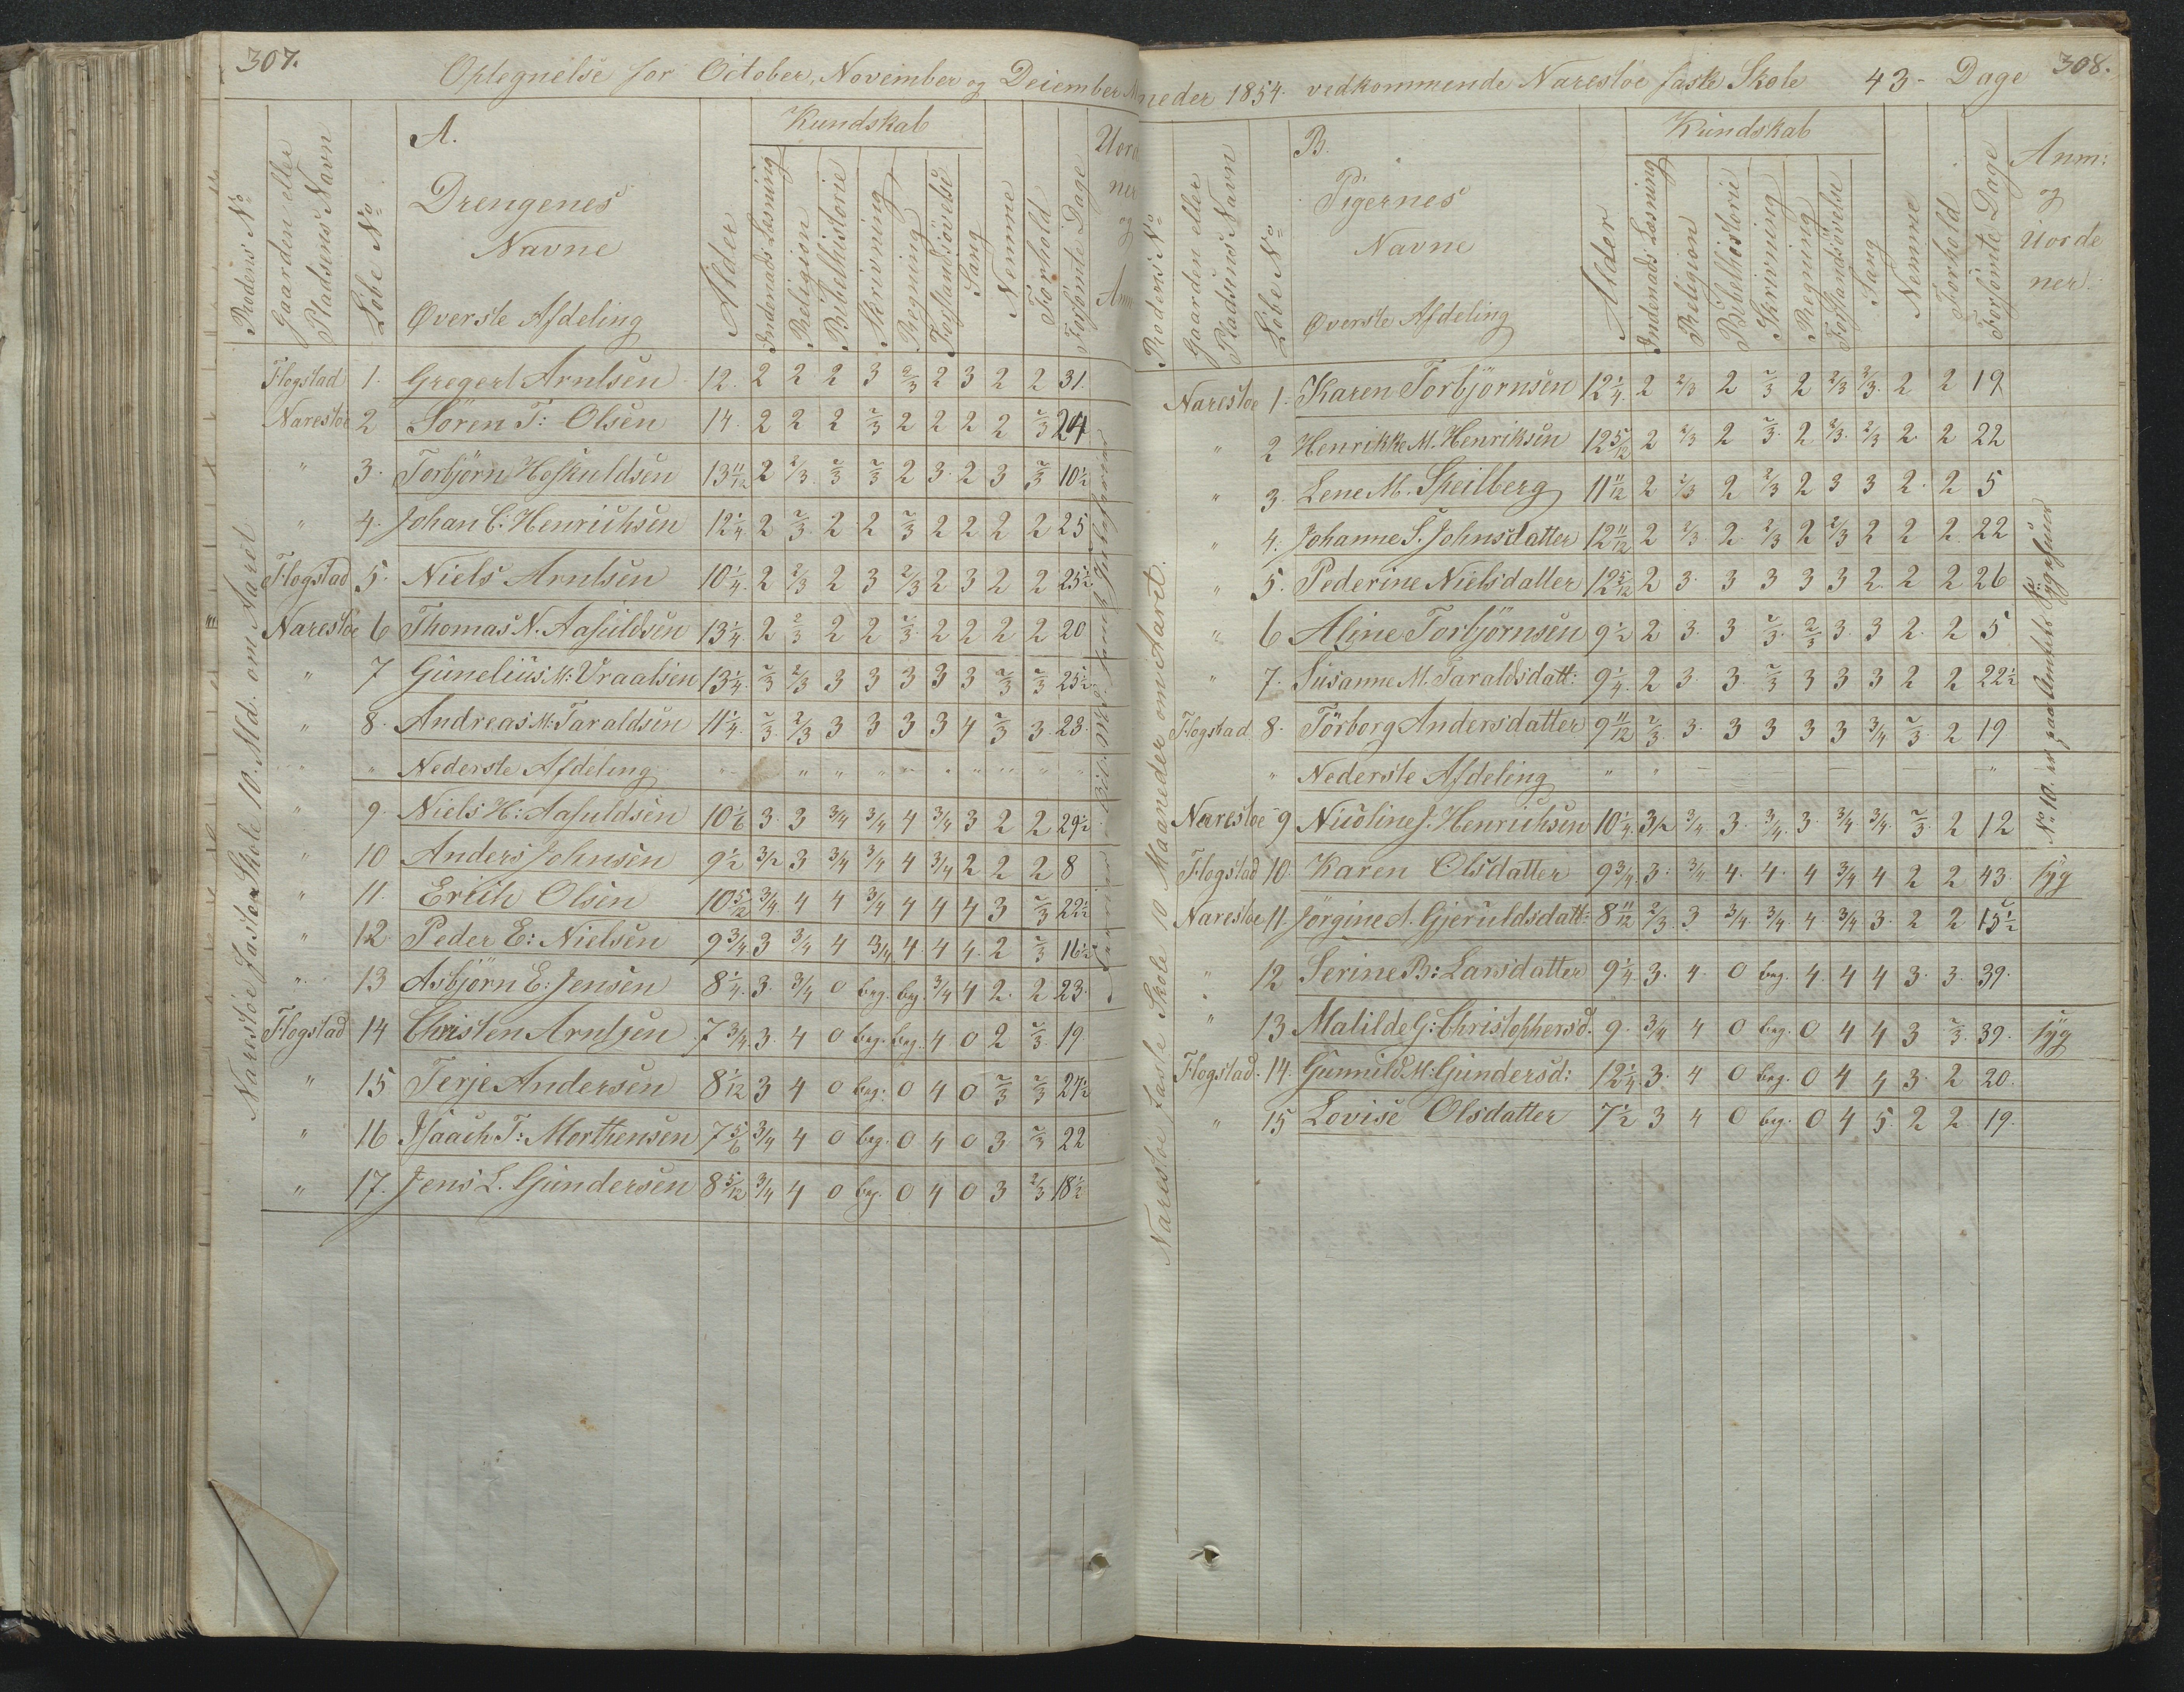 307.
Optegnelse for October, November og Decemb er
A.
Kundskab
Rodens No
Gaarden eller Pladsens Navn
Löbe No
Drengenes
Navne
Øverste Afdeling
Alder
Indenads Læsning
Religion
Bibelhistorie
Skrivning
Regning
Sang
Nemme
Forhold
Forsömte Dage
Narestöe faste Skole 10. Md. om Aaret
Flogstad 1. Gregert Arntsen 12. 2 2 2 3 2/3 2 3 2 2 31.
Narestöe 2 Sören T: Olsen 14. 2 2 2 2/3 2 2 2 2 2/3 24
" 3. Torbjörn Hoskuldsen 13 11/12 2 2/3. 2/3 2/3 2 3. 2 3 2/3 10½
" 4. Johan C: Henrichsen 12¼ 2 2/3. 2. 2 2/3 2 2 2 2 25
Flogstad 5. Niels Arntsen 10¼. 2 2/3 2 3 2/3 2 3 2 2 25½
Narestoe 6 Thomas N. Aasuldsen 13¼. 2 2/3 2 2 2/3. 2 2 2 2 20
" 7 Gunelius M: Vraalsen 13¼. 2/3 2/3 3 3 3 3 3 2/3 2/3 25½
" 8. Andreas M: Taraldsen 11¼. 2/3. 2/3 3 3 3 3 4 2/3 3. 23.
" Nederste Afdeling
" 9. Niels H: Aasuldsen 10 1/6 3. 3 3/4 3/4 4 3/4 3 2 2 29½
" 10 Anders Johnsen 9½ 3/2 3 3/4 3/4 4 3/4 2 2 2 8
" 11. Erich Olsen 10 5/12 3/4. 4 4 3/4 4 4 4 3 2/3 22½
" 12. Peder E: Nielsen 9¾. 3 3/4 4 3/4 4. 4 4. 2 2/3 16½
" 13 Asbjörn E: Jensen 8¼. 3. 3/4 0 beg. beg. 3/4 4 2. 2 23.
Flogstad 14 Christen Arntsen 7¾. 3. 4 0 beg. beg. 4 0 2 2/3. 19.
" 15 Terje Andersen 8 1/12 3 4 0 beg: 0 4 0 2/3 2/3 27½
" 16 Isaach T: Morthensen 7 5/6 3/4 4 0 beg. 0 4 0 3 2/3 22
" 17. Jens L. Gundersen 8 5/12 3/4 4 0 beg. 0 4 0 3 2/3 18½
308.
neder 1854. vedkommende Narestöe faste Skole 43- Dage
B.
Kundskab
Rodens No
Gaarden eller Pladsens Navn
Löbe No
Pigernes
Navne
Øverste Afdeling
Alder
Indenads Læsning
Religion
Bibelhistorie
Skrivning
Regning
Sang
Nemme
Forhold
Forsömte Dage
Anm:
og
Uorde
ner.
Narestoe faste Skole 10 Maaneder om Aaret.
Narestoe 1. Karen Torbjörnsen 12¼. 2 2/3 2 2/3 2 2/3 2/3. 2 2 19
" 2 Henrikke M. Henriksen 12 5/12 2 2/3 2 2/3. 2 2/3. 2/3 2. 2 22
" 3. Lene M. Speilberg 11 11/12 2 2/3 2 2/3 2 3 3 2. 2 5
" 4. Johanne S. Johnsdatter 12 11/12 2 2/3 2. 2/3 2 2/3 2 2 2 22
" 5. Pederine Nielsdatter 12 5/12 2 3. 3 3 3 3 2. 2 2 26
" 6 Aline Torbjörnsen 9½ 2 3. 3 2/3. 2/3 3. 3 2. 2 5
" 7. Susanne M. Taraldsdatt: 9¼. 2 3. 3. 2/3 3 3 3 2 2 22½
Flogstad 8. Törborg Andersdatter 9 11/12 2/3 3. 3 3 3 3 3/4 2/3. 2 19
" Nederste Afdeling
Narestoe 9 Nicoline J. Henrichsen 10¼. 3/2 3/4 3. 3/4. 3. 3/4 3/4. 2/3. 2 12
Flogstad 10. Karen Olsdatter 9¾. 3. 3/4 4. 4. 4 3/4 4 2 2 43. syg
Narestoe 11 Jörgine A. Gjeruldsdatt: 8 11/12 2/3. 3 3/4. 3/4. 4. 3/4 3. 2 2 15½
" 12 Serine B: Larsdatter 9¼. 3. 4. 0 beg. 4. 4 4 3. 3. 39.
" 13 Matilde G: Christophersd. 9. 3/4 4 0 beg. 0 4 4 3 2/3. 39. syg
Flogstad. 14. Gunnild M: Gundersd: 12¼. 3. 4 0 beg. 0 4 4 3. 2 20.
" 15 Lovise Olsdatter 7½ 3 4 0 beg. 0 4 5. 2 2 19.
No 10. er paa Amtets Sygehuus